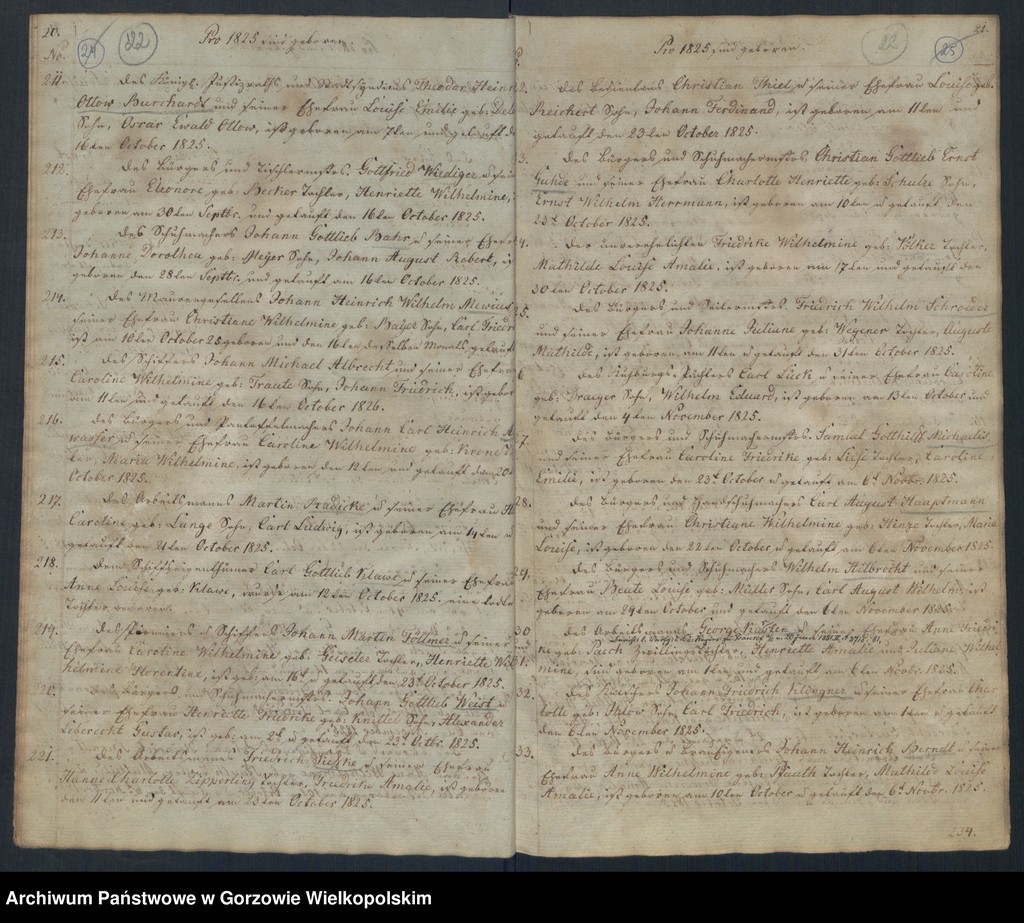 20.
24
322
Pro 1825 sind geboren
No.
211. des Königl. Justizraths und Stadtsyndicus Theodor Heinr
Ottow Burchardt und seiner Ehefrau Louise Emilie geb:
Sohn, Oscar Ewald Ottow, ist geboren am 7ten, und getauft d
16ten October 1825.
212. des Bürgers und Tischlermstrs. Gottfried Wiediger u sein
Ehefrau Eleonore, geb: Becker Tochter, Henriette Wilhelmine,
geboren am 30ten Septbr. und getauft den 16ten October 1825.
213. des Schuhmachers Johann Gottlieb Bahr u seiner Ehefr
Johanne Dorothea geb: Meyer Sohn, Johann August Robert, is
geboren den 28ten Septbr. und getauft am 16ten October 1825.
214. des Mauergesellens Johann Heinrich Wilhelm Mewius
seiner Ehefrau Christiane Wilhelmine geb: Bayer Sohn, Carl Friedr
ist am 10ten October 25 geboren und den 16ten desselben Monats getauft
215. des Schiffers Johann Michael Albrecht und seiner Ehefrau
Caroline Wilhelmine geb: Traute Sohn, Johann Friedrich, ist gebor
am 11ten und getauft den 16ten October 1826.
216. des Bürgers und Pantoffelmachers Johann Carl Heinrich
wasser u seiner Ehefrau Caroline Wilhelmine geb: Krone
ter, Maria Wilhelmine, ist geboren den 12ten und getauft den 20
October 1825.
217. des Arbeitsmanns Martin Radicke u seiner Ehefrau
Caroline geb: Lange Sohn, Carl Ludwig, ist geboren am 14ten u
getauft den 21ten October 1825.
218. dem Schiffseigenthümer Carl Gottlieb Klawe u seiner Ehefrau
Anne Louise geb: Klawe, wurde am 12ten October 1825. eine todte
Tochter geboren.
219. des u Schiffers Johann Martin Föllmer u seiner
Ehefrau Caroline Wilhelmine geb: Geiseler Tochter, Henriette Wil
helmine Florentine, ist geb: am 16t. u getauft den 23t. October 1825.
20. des Bürgers und Schuhmachermstrs. Johann Gottlieb Weist u
seiner Ehefrau Henriette Friedrike geb: Knittel Sohn, Alexander
Leberecht Gustav, ist geb: am 2t. u getauft den 23t. Octbr. 1825.
221. des Arbeitsmanns Friedrich u seiner Ehefrau
Hanne Charlotte Zipperling Tochter, Friedrike Amalie, ist geboren
den 11ten und getauft am 23ten October 1825.
21.
22
25
Pro 1825 sind geboren
2. des Bedienten Christian Thiel u seiner Ehefrau Louise geb.
Reichert Sohn, Johann Ferdinand, ist geboren am 11ten und
getauft den 23ten October 1825.
3. des Bürgers und Schuhmachermstrs. Christian Gottlieb Ernst
und seiner Ehefrau Charlotte Henriette geb: Schulze Sohn,
Ernst Wilhelm Herrmann, ist geboren am 10ten u getauft den
23t. October 1825.
4. Der unverehelichten Friedrike Wilhelmine geb: Völker Tochter,
Mathilde Louise Amalie, ist geboren am 17ten und getauft den
30ten October 1825.
5. des Bürgers und Seilermstrs. Friedrich Wilhelm Schroeder
und seiner Ehefrau Johanne Juliane geb: Wegener Tochter, Auguste
Mathilde, ist geboren am 11ten u getauft den 31ten October 1825.
6 des Pächters Carl Lück u seiner Ehefrau Caroline
geb: Draeger Sohn, Wilhelm Eduard, ist geboren am 13ten October und
getauft den 4ten November 1825.
7. des Bürgers und Schuhmachermstrs. Samuel Gotthilf Michaelis
und seiner Ehefrau Caroline Friedrike geb: Liese Tochter, Caroline
Emilie, ist geboren den 23t. October u getauft am 6t. Novbr. 1825.
28. des Bürgers und Handschuhmachers Carl August Hauptmann
und seiner Ehefrau Christiane Wilhelmine geb: Hinze Tochter, Maria
Louise, ist geboren den 22ten October u getauft am 6ten November 1825.
29. des Bürgers und Schuhmachers Wilhelm Hilbrecht und seiner
Ehefrau Beate Louise geb: Müller Sohn, Carl August Wilhelm, ist
geboren am 24ten October und getauft den 6ten November 1825.
30 des Arbeitsmanns George u seiner Ehefrau Anne Friedri
31. ke geb: Paech Zwillings Töchter, Henriette Amalie und Juliane Wilhel
mine, sind geboren am 1ten und getauft am 6ten Novbr. 1825.
32. des Johann Friedrich Klingner u seiner Ehefrau Char
lotte geb: Sohn, Carl Friedrich, ist geboren am 1ten u getauft
den 6ten November 1825.
33. des Bürgers u Johann Heinrich Berndt u seiner
Ehefrau Anne Wilhelmine geb: Pfauth Tochter, Mathilde Louise
Amalie, ist geboren am 10ten October u getauft den 6t. Novbr. 1825.
234.
Archiwum Państwowe w Gorzowie Wielkopolskim